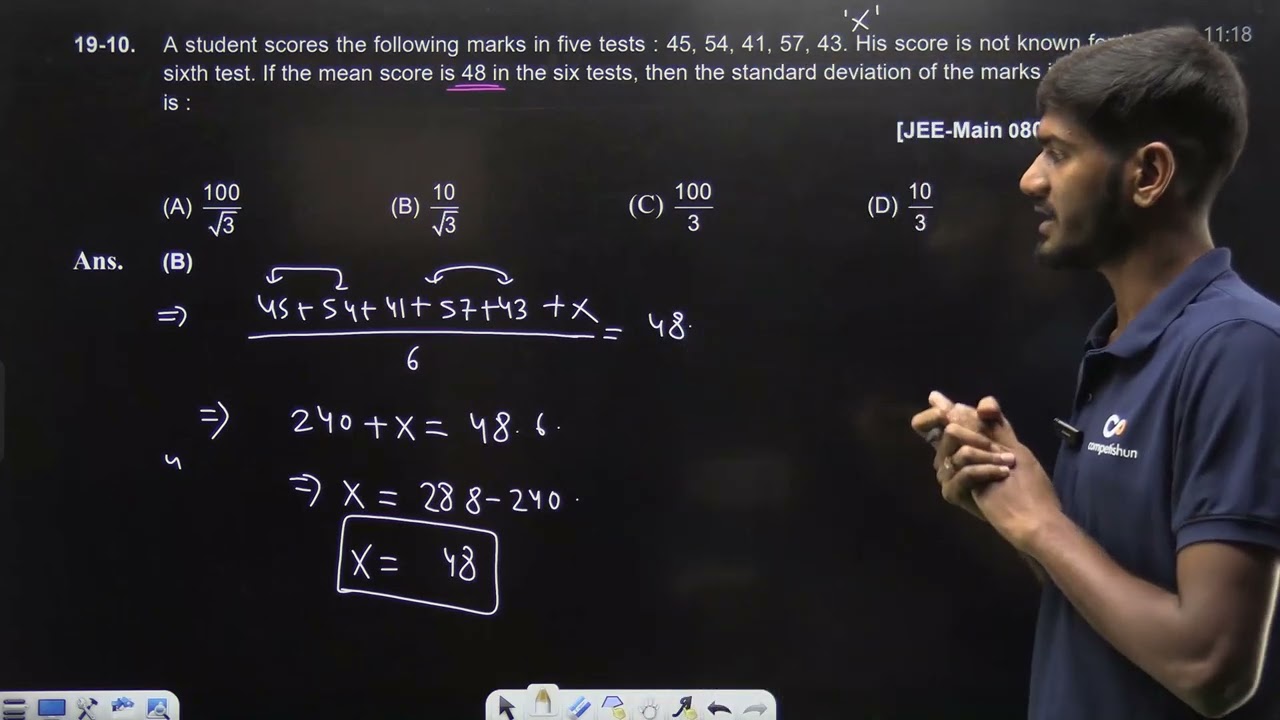 'X'
19-10. A student scores the following marks in five tests : 45, 54, 41, 57, 43. His score is not known
11:18
sixth test. If the mean score is 48 in the six tests, then the standard deviation of the marks
is :
[JEE-Main
(A) 100/√3 (B) 10/√3 (C) 100/3 (D) 10/3
Ans. (B)
⇒ (45+54+41+57+43+x)/6 = 48.
⇒ 240+x = 48.6.
⇒ x = 288-240.
x = 48
competishun